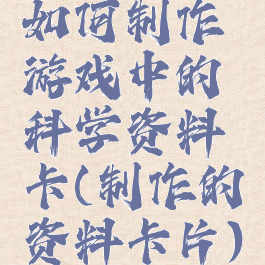 如何制作
游戏中的
科学资料
卡(制作的
资料卡片)